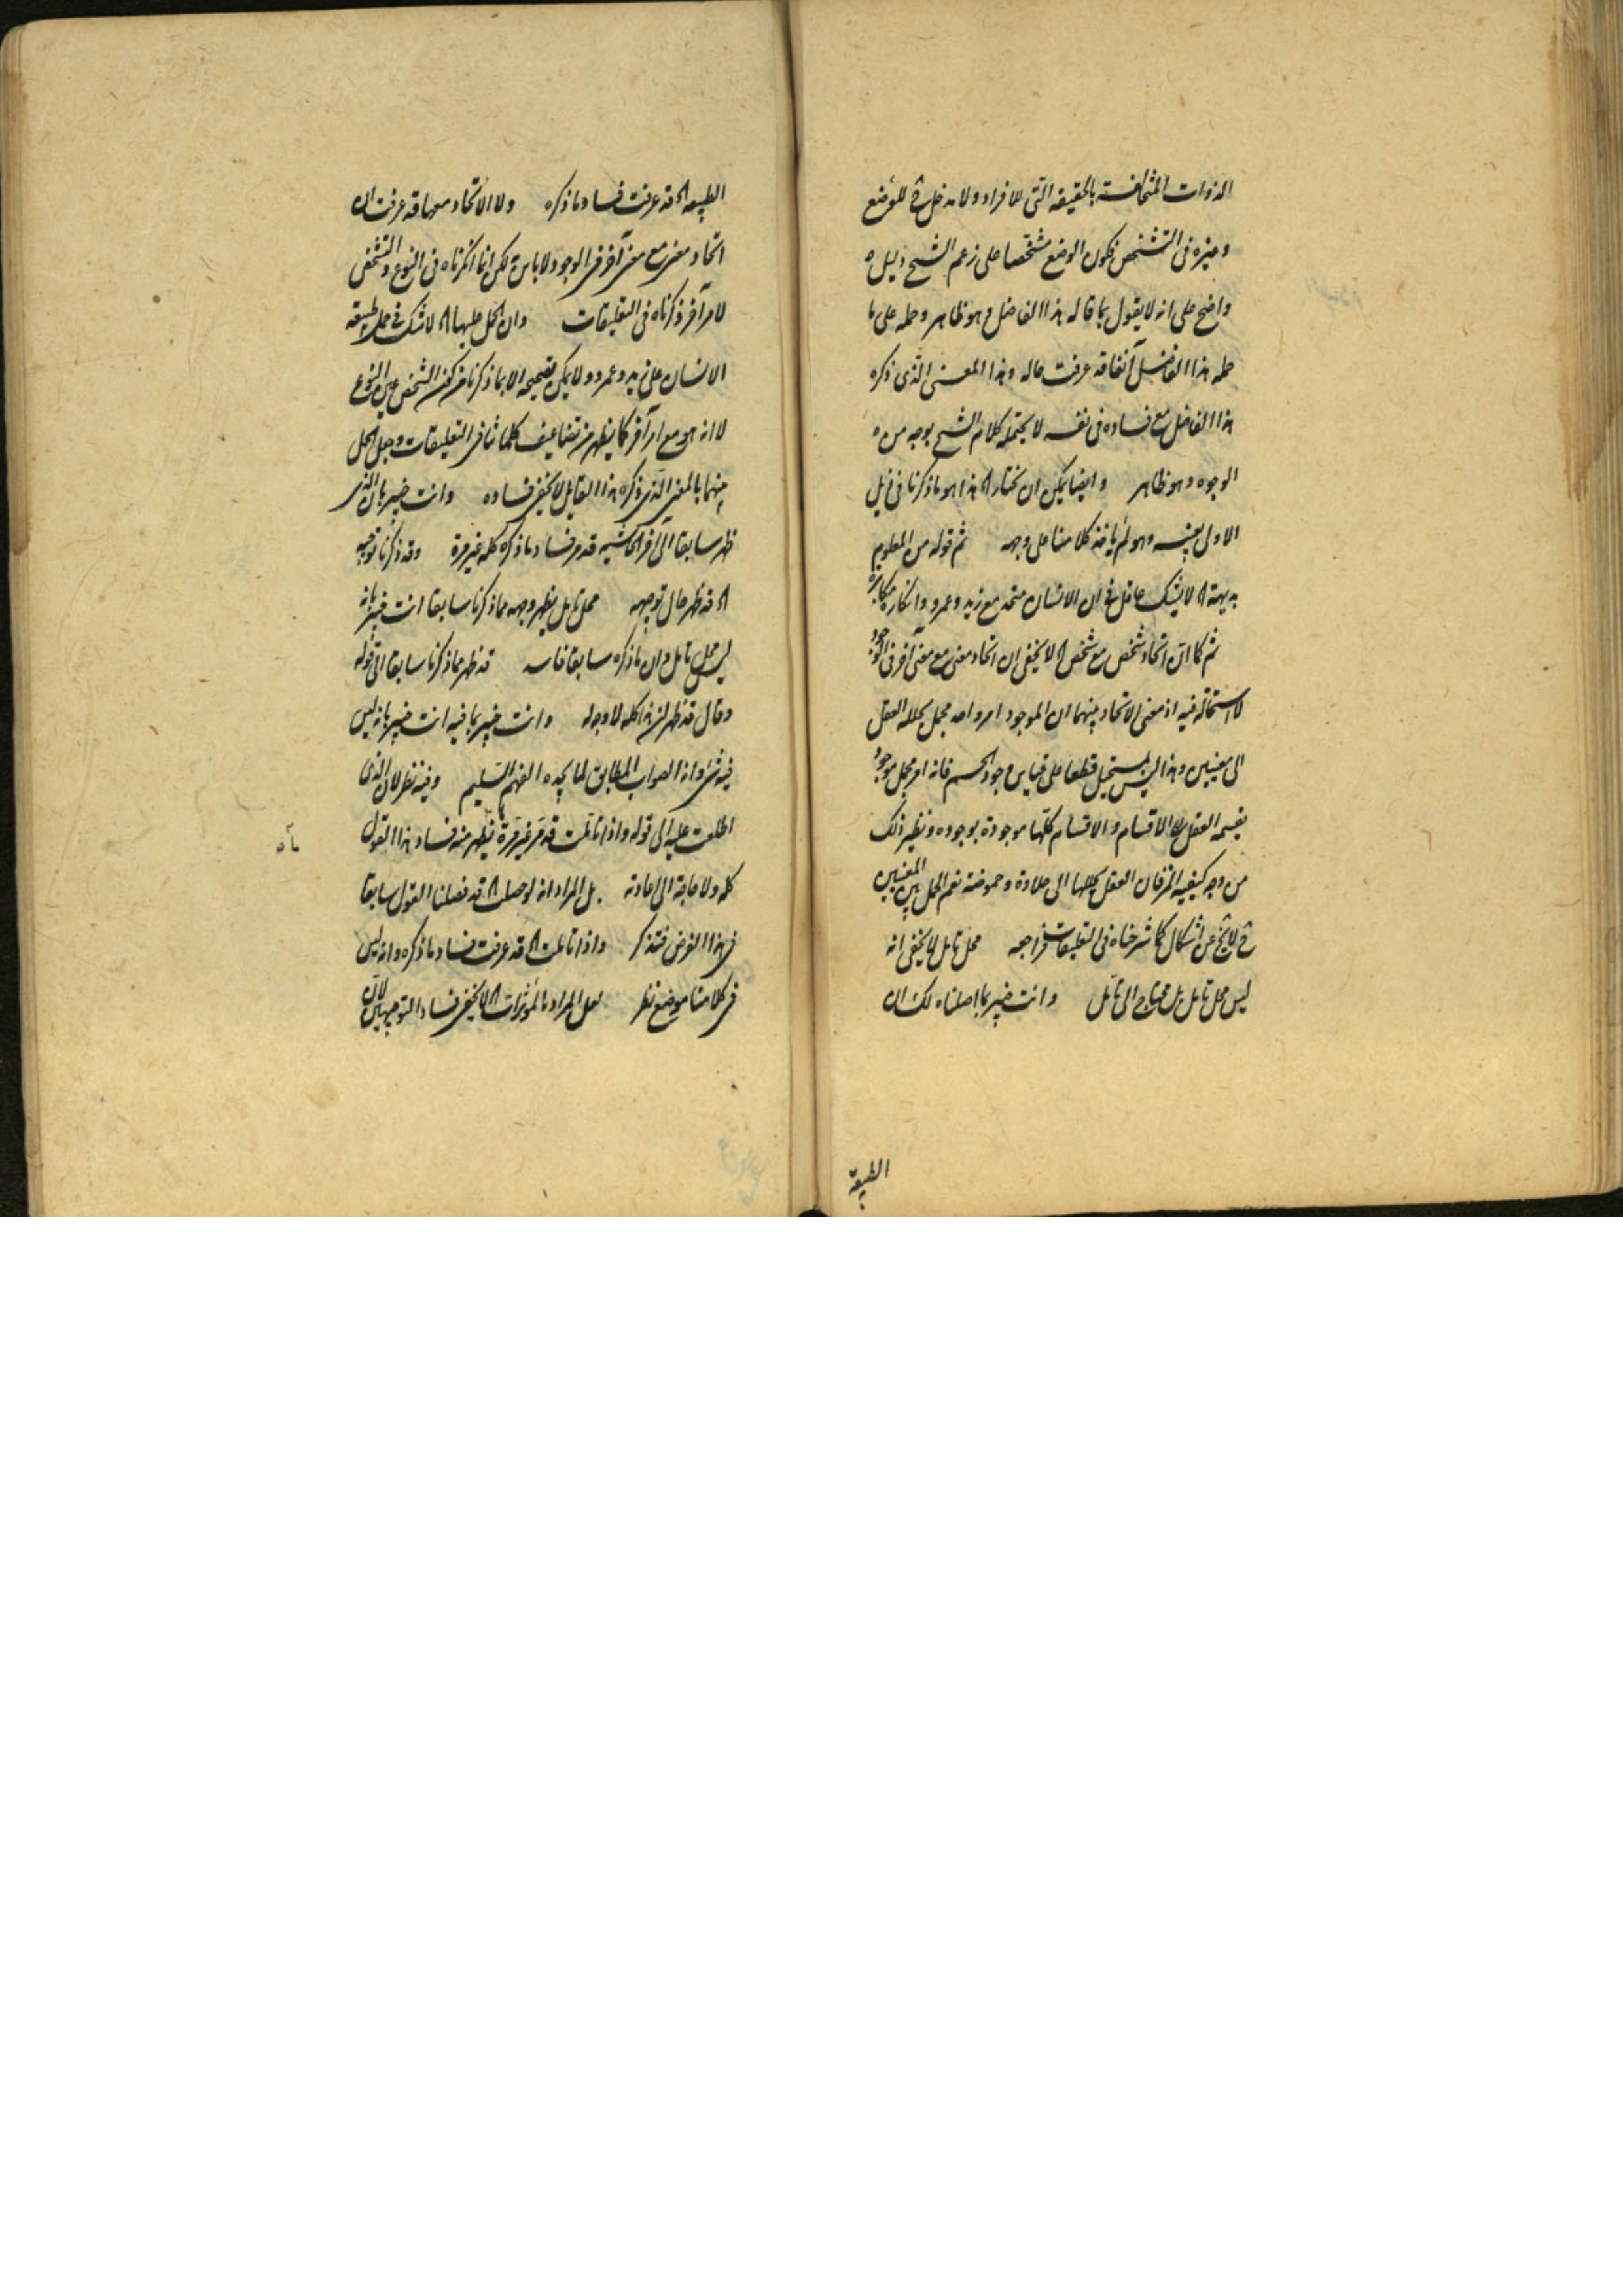 الذوات المتخالفة بالحقيقة التى للافراد ولا مدخل ح للوضع
وغيره فى التشخص فكون الوضع مشخصا على زعم الشيخ دليل
واضح على انه لا يقول بما قاله هذا الفاضل وهو ظاهر وحمله على ما
حمله هذا الفاضل آنفا قد عرفت حاله وهذا المعنى الذى ذكره
هذا الفاضل مع فساده فى نفسه لا يحتمله كلام الشيخ بوجه من
الوجوه وهو ظاهر وايضا يمكن ان يختار هذا هو ما ذكرنا فى ذيل
الاولى بعينه وهو لم ياخذ كلامنا على وجهه ثم قوله من المعلوم
بديهة لا يشك عاقل فى ان الانسان متحد مع زيد وعمرو وانكاره مكابرة
ثم كما ان اتحاد شخص مع شخص لا يخفى ان اتحاد معنى مع معنى آخر فى الوجود
لا استحالة فيه اذ معنى الاتحاد بينهما ان الموجود امر واحد مجمل يحلله العقل
الى معنيين وهذا ليس بمستحيل قطعا على قياس وجود الجسم فانه امر مجمل موجود
يقسمه العقل الى الاقسام والاقسام كلها موجودة بوجوده ونظير ذلك
من وجه كيفية المز فان العقل يحللها الى حلاوة وحموضة نعم الحمل بين المعنيين
ح لا يخ عن اشكال كما شرحناه فى التعليقات فراجعه محل تامل لا يخفى انه
ليس محل تامل بل محتاج الى تامل وانت خبير بما اصلناه لك ان
الطبيعة
الطبيعة قد عرفت فساد ما ذكره ولا الاتحاد معها قد عرفت ان
اتحاد معنى مع معنى آخر فى الوجود لا باس به لكن انما انكرناه فى النوع والتشخص
لامر آخر ذكرناه فى التعليقات وان الحمل عليها لا شك فى حمل طبيعة
الانسان على زيد وعمرو ولا يمكن تصحيحه الا بما ذكرنا من كون الشخص عين النوع
لا انه هو مع امر آخر كما يظهر من تضاعيف كلماتنا فى التعليقات وجعل الحمل
بينهما بالمعنى الذى ذكره هذا القايل لا يخفى فساده وانت خبير بان الذى
ظهر سابقا الى آخر الحاشية قد مر فساد ما ذكره كله غير مرة وقد ذكرنا توجيه
قد ظهر حال توجيهه محل تامل يظهر وجهه مما ذكرنا سابقا انت خبير بانه
ليس محل تامل وان ما ذكره سابقا فاسد قد ظهر مما ذكرنا سابقا الى قوله
وقال قد ظهر ان هذا كله لا وجه له وانت خبير بما فيه انت خبير بانه ليس
فيه شئ وانه الصواب المطابق لما يجده الفهم السليم وفيه نظر لان الذى
اطلعت عليه الى قوله واذا تاملت قد مر غير مرة يظهر منه فساد هذا القول
كله ولا حاجة الى اعادته بل المراد انه لو حصلت قد فصلنا القول سابقا
فى هذا الفرض فتذكر واذا تاملت قد عرفت فساد ما ذكره وانه ليس
فى كلامنا موضع نظر لعل المراد بالمؤثرات لا يخفى فساد التوجيهين لان